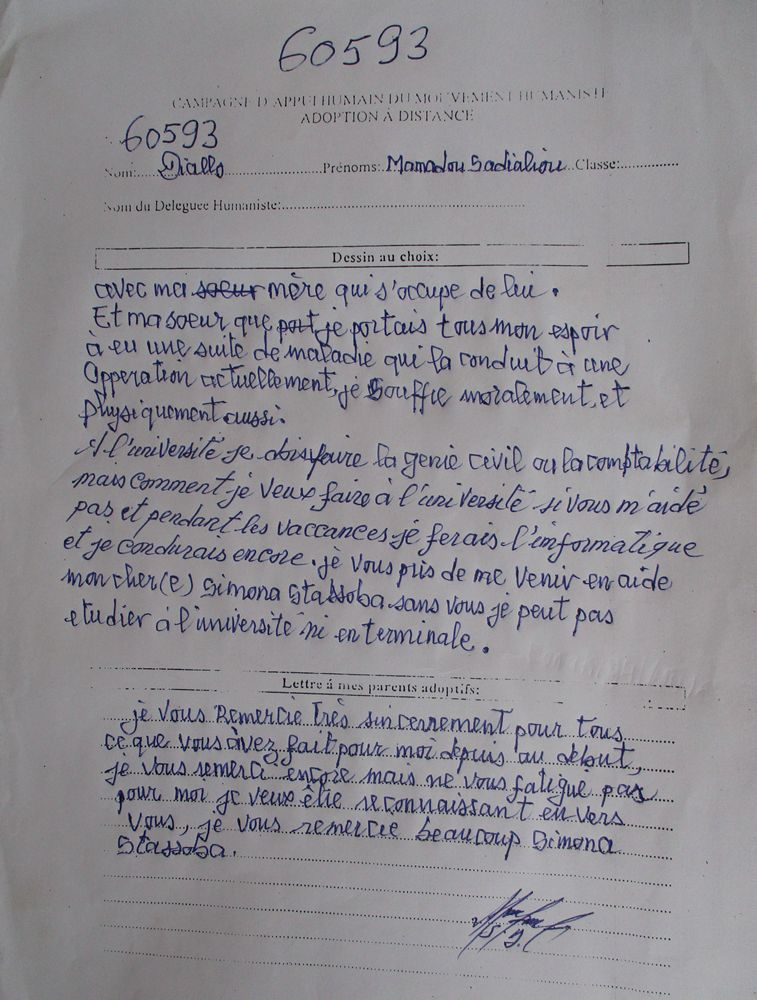 60593
CAMPAGNE D'APPUI HUMAIN DU MOUVEMENT HUMANISTE
ADOPTION À DISTANCE
60593
Nom:.....Diallo.....Prénoms:..Mamadou Sadialiou..Classe:.....
Nom du Deleguee Humaniste:.....
Dessin au choix:
avec ma soeur mère qui s'occupe de lui.
Et ma soeur que port je portais tous mon espoir
à eu une suite de maladie qui la conduit à une
Opperation actuellement, je souffre moralement, et
physiquement aussi.
A l'université je dois faire la genie civil ou la comptabilité,
mais comment je veux faire à l'université si vous m'aidé
pas et pendant les vaccances je ferais l'informatique
et je condurais encore. je vous pris de me venir en aide
mon cher(e) Simona Stassoba sans vous je peut pas
etudier à l'université ni en terminale.
Lettre á mes parents adoptifs:
je vous Remercie très sincerrement pour tous
ce que vous avez fait pour moi depuis au debut,
je vous remerci encore mais ne vous fatigué pas
pour moi je veux être reconnaissant en vers
vous, je vous remercie beaucoup Simona
Stassoba.